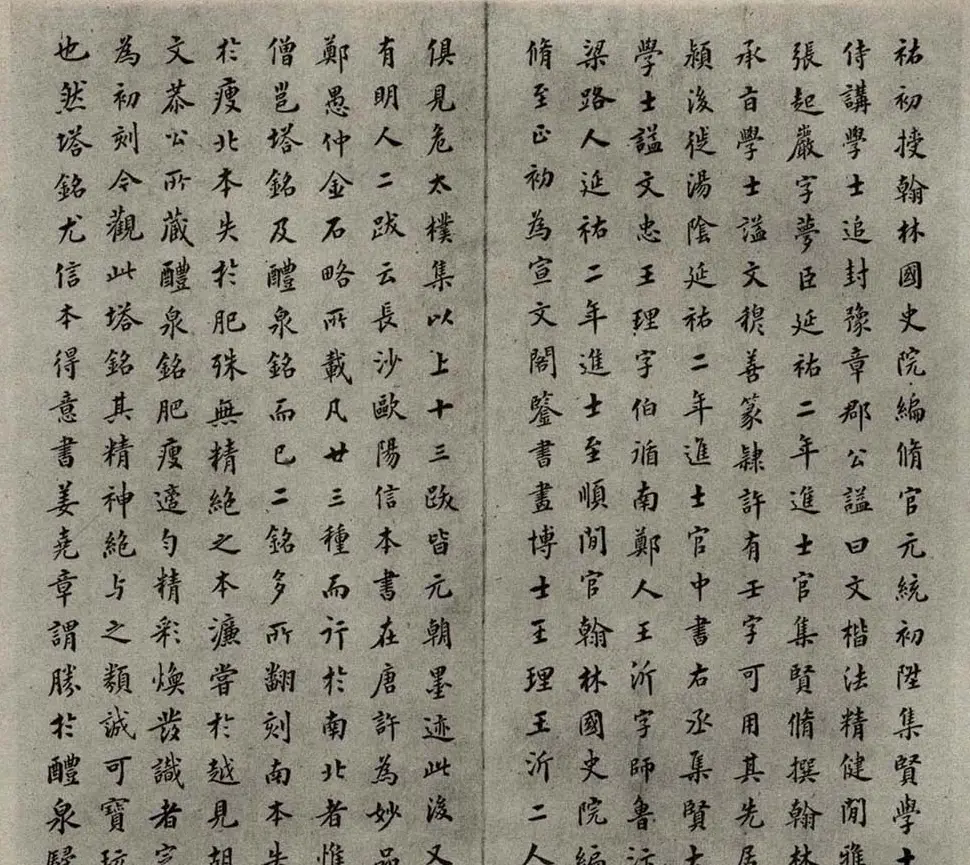 祐初授翰林國史院編脩官元統初陞集賢學士
侍講學士追封豫章郡公謚曰文楷法精健閒雅
張起巖字夢臣延祐二年進士官集賢脩撰翰林
承旨學士謚文穆善篆隸許有壬字可用其先居
潁後徙湯陰延祐二年進士官中書右丞集賢大
學士謚文忠王理字伯循南鄭人王沂字師魯汴
梁路人延祐二年進士至順間官翰林國史院編
脩至正初為宣文閣鑒書畫博士王理王沂二人
俱見危太樸集以上十三跋皆元朝墨迹此後又
有明人二跋云長沙歐陽信本書在唐許為妙品
鄭愚仲金石略所載凡廿三種而行於南北者惟
僧邕塔銘及醴泉銘而已二銘多所翻刻南本失
於瘦北本失於肥殊無精絕之本濂嘗於越見胡
文恭公所藏醴泉銘肥瘦適勻精彩煥發識者定
為初刻今觀此塔銘其精神絕与之類誠可寶玩
也然塔銘尤信本得意書姜堯章謂勝於醴泉